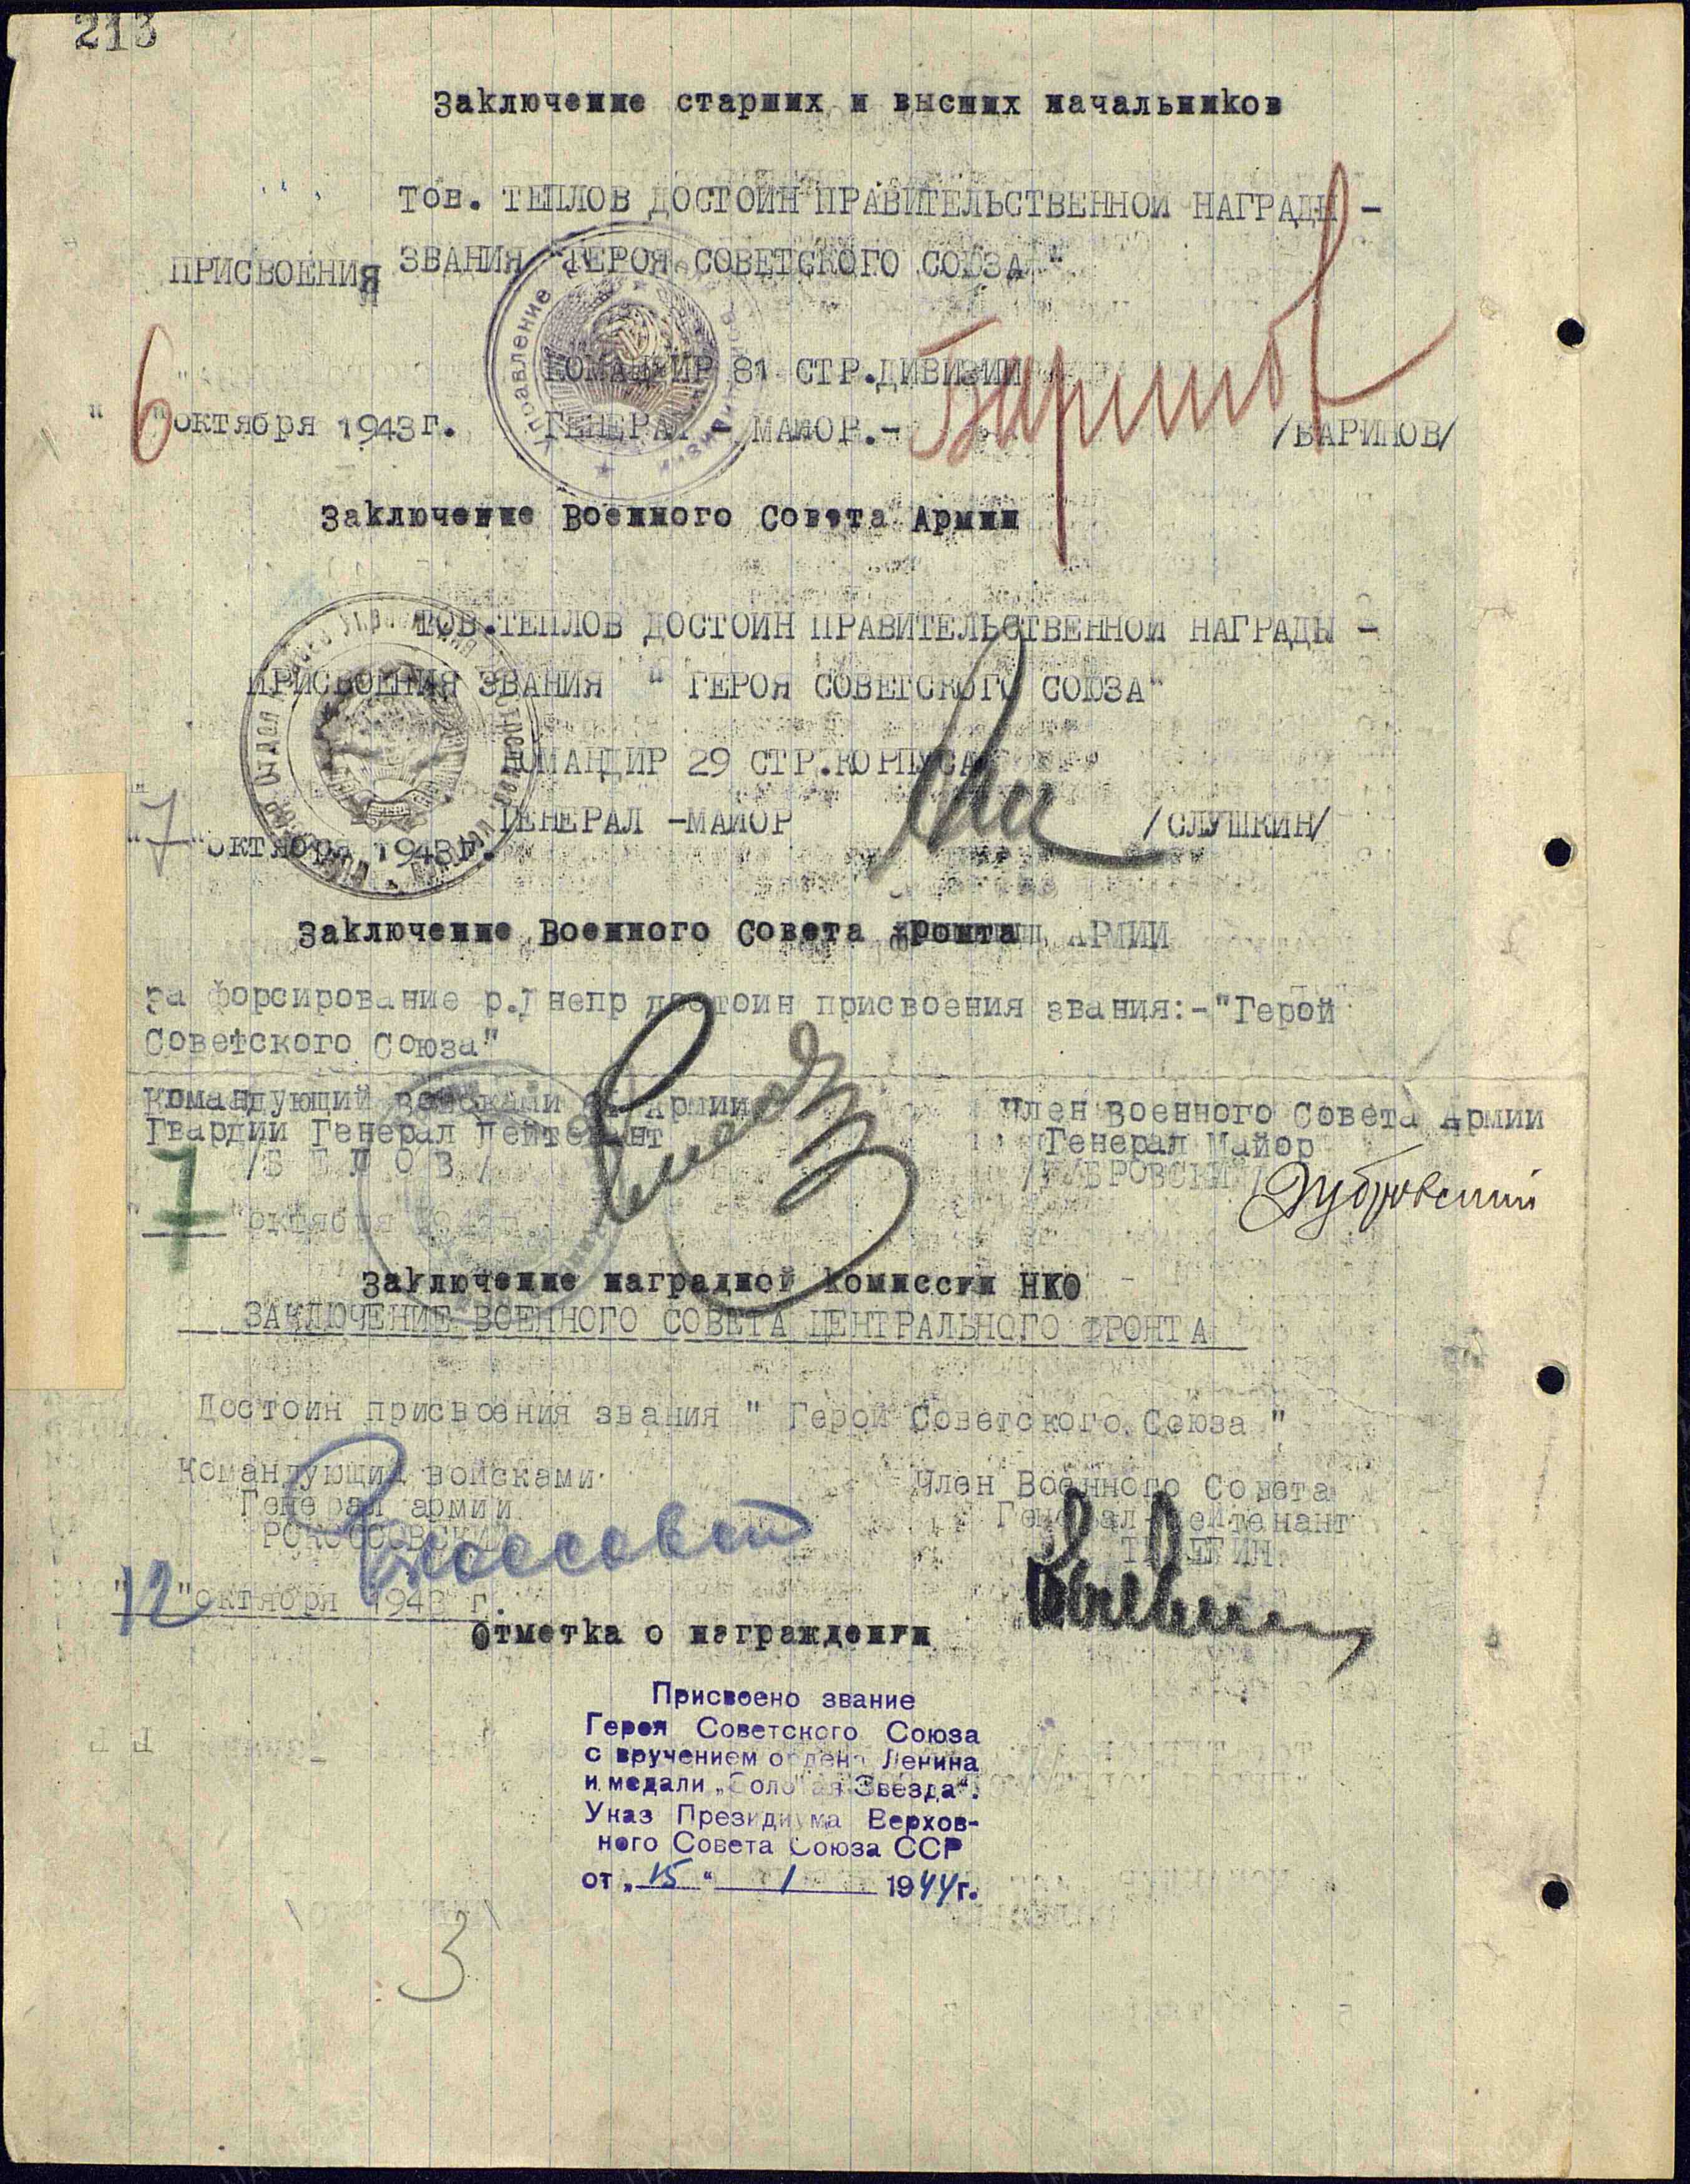 213
Заключение старших и высших начальников
Тов. ТЕПЛОВ ДОСТОИН ПРАВИТЕЛЬСТВЕННОЙ НАГРАДЫ -
ПРИСВОЕНИЯ ЗВАНИЯ "ГЕРОЯ СОВЕТСКОГО СОЮЗА"
КОМАНДИР 81 СТР.ДИВИЗИИ
"6" октября 1943г. ГЕНЕРАЛ - МАЙОР.- /БАРИНОВ/
Заключение Военного Совета Армии
ТОВ.ТЕПЛОВ ДОСТОИН ПРАВИТЕЛЬСТВЕННОЙ НАГРАДЫ -
ПРИСВОЕНИЯ ЗВАНИЯ " ГЕРОЯ СОВЕТСКОГО СОЮЗА"
КОМАНДИР 29 СТР.КОРПУСА
ГЕНЕРАЛ -МАЙОР /СЛУШКИН/
"7" октября 1943г.
Заключение Военного Совета фронта АРМИИ
за форсирование р.Днепр достоин присвоения звания:-"Герой
Советского Союза"
Командующий войсками Армии Член Военного Совета Армии
Гвардии Генерал Лейтенант Генерал Майор
/Б Е Л О В / /ДУБРОВСКИЙ/ Дубровский
"7" октября 1943г.
Заключение наградной комиссии НКО
ЗАКЛЮЧЕНИЕ ВОЕННОГО СОВЕТА ЦЕНТРАЛЬНОГО ФРОНТА
Достоин присвоения звания " Герой Советского Союза "
Командующий войсками Член Военного Совета
Генерал армии Генерал-Лейтенант
РОКОССОВСКИЙ ТЕЛЕГИН
"12" октября 1943 г.
Отметка о награждении
Присвоено звание
Героя Советского Союза
с вручением ордена Ленина
и медали „Золотая Звезда".
Указ Президиума Верхов-
ного Совета Союза ССР
от „15" 1 1944г.
3